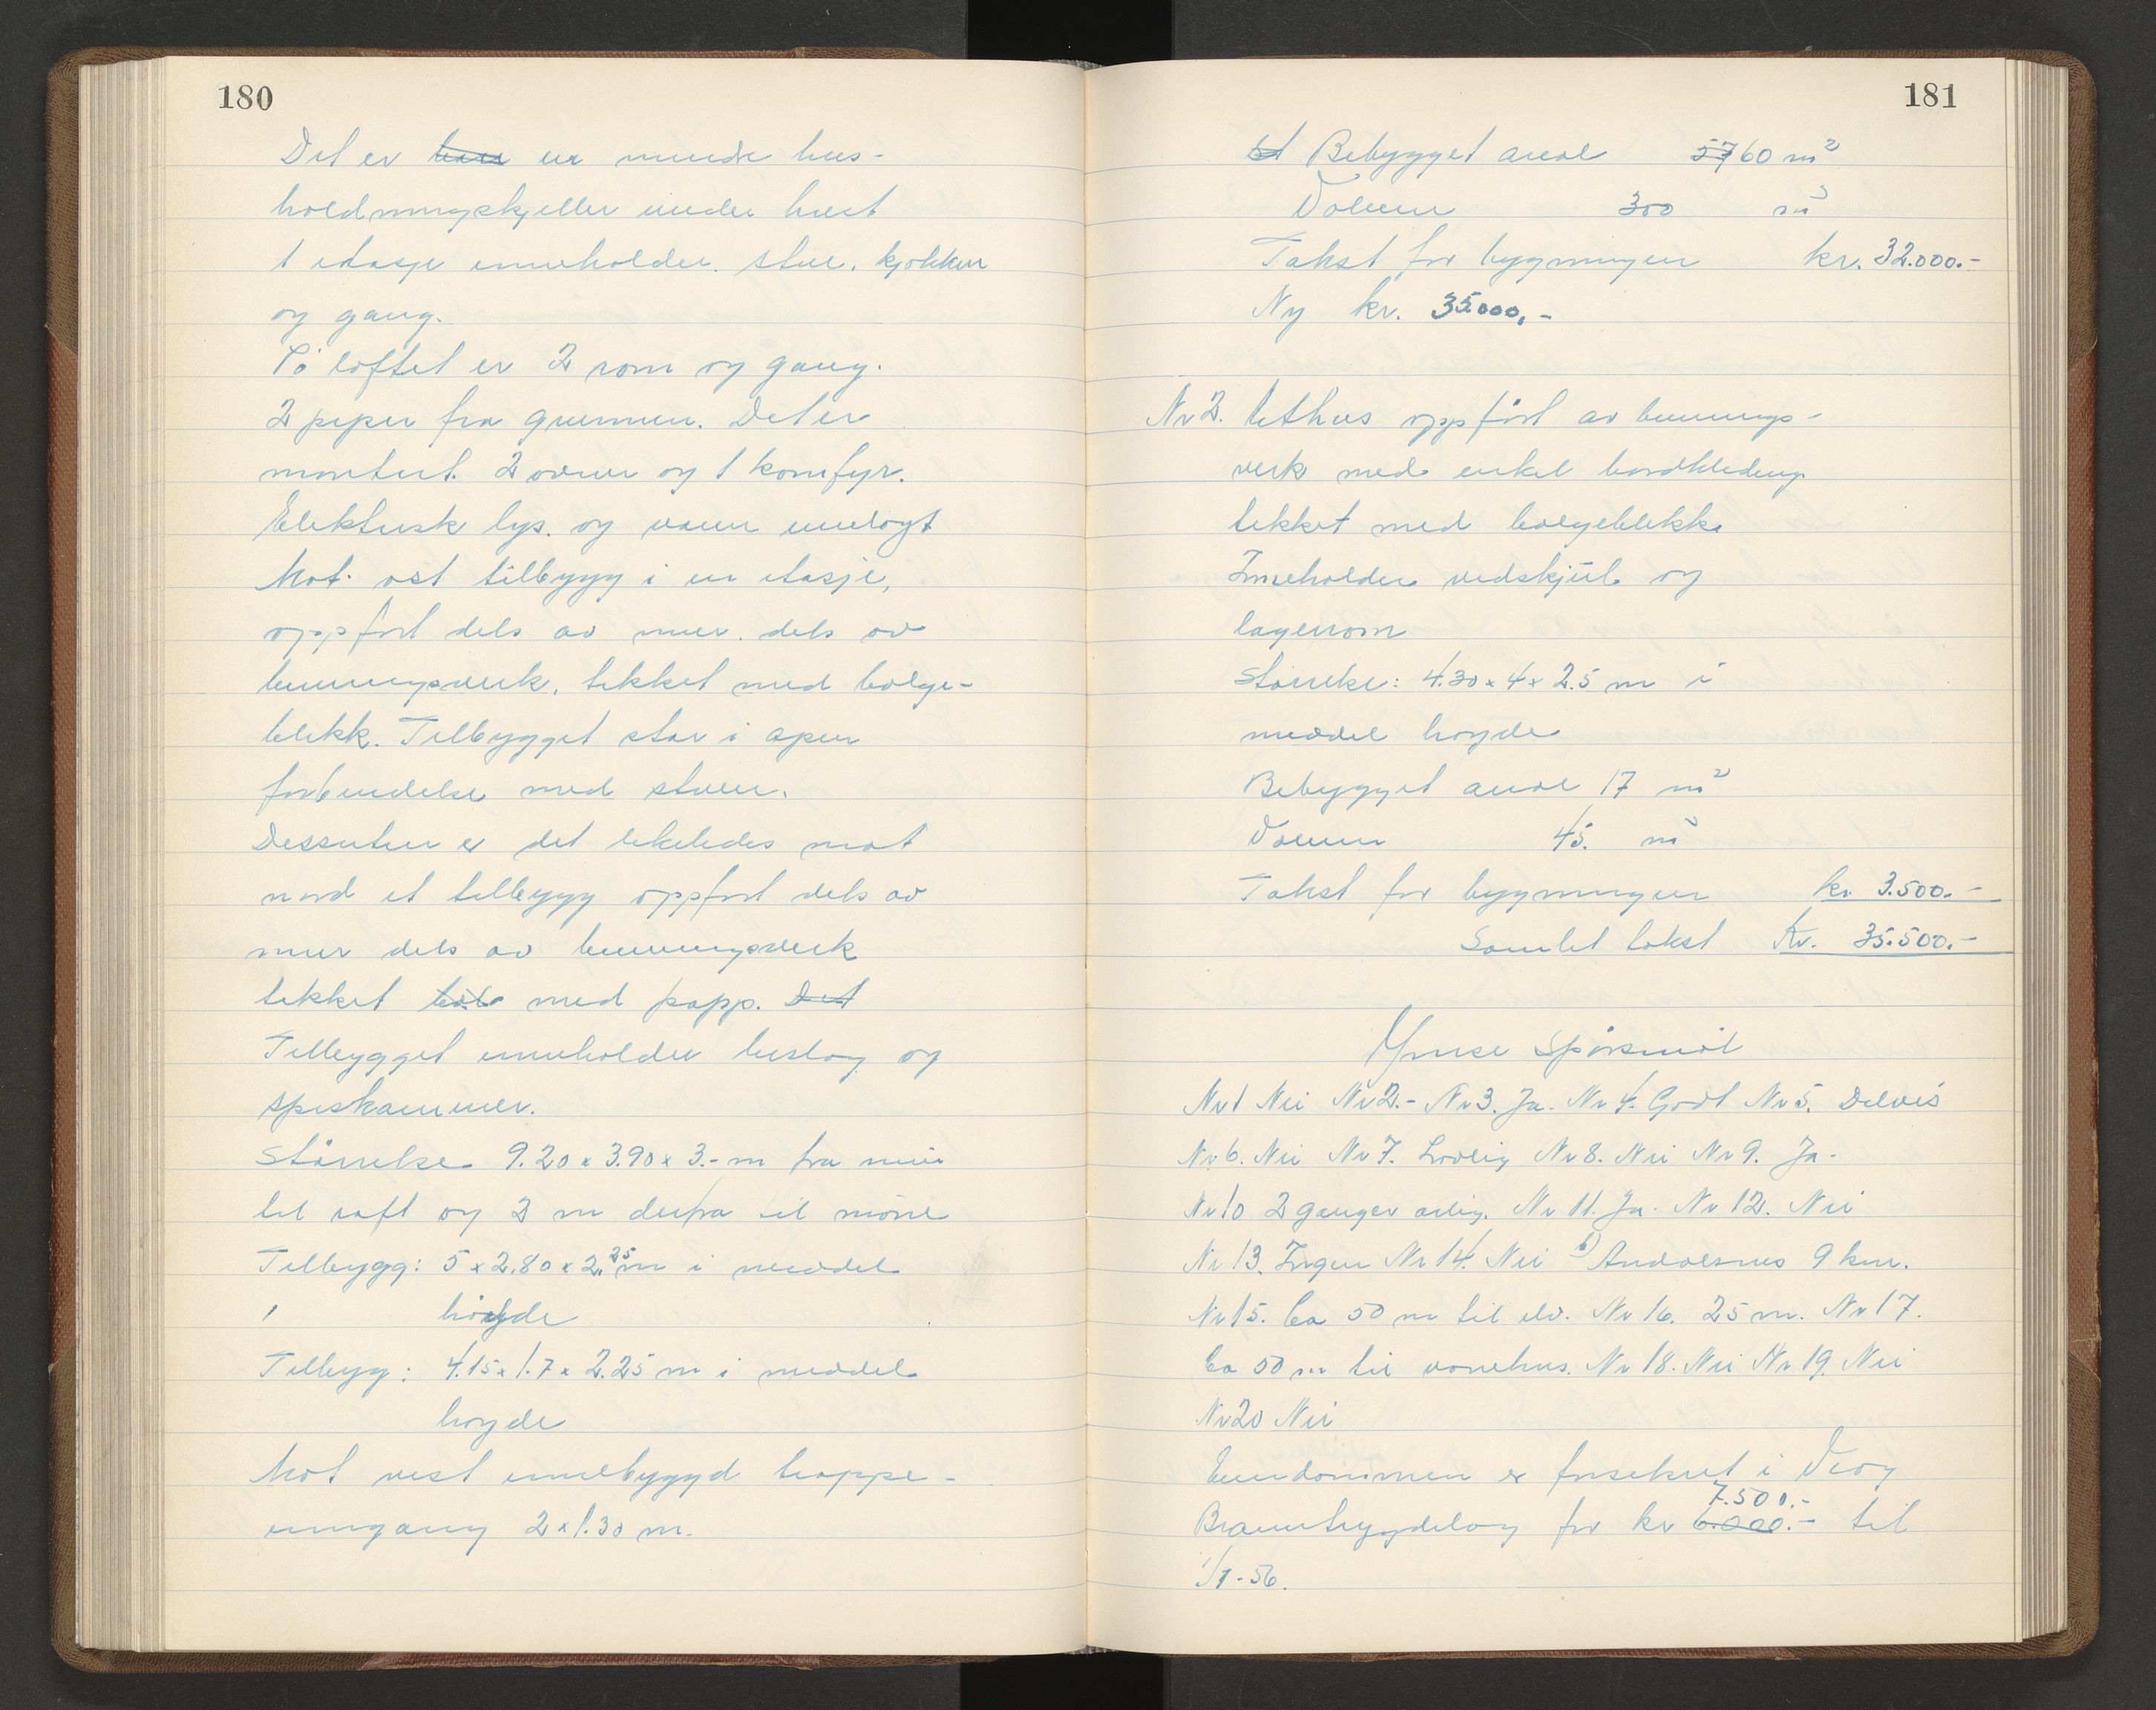 180
Det er bare en mindre hus-
holdningskjeller under huset
1 etasje inneholder. stue, kjøkken
og gang.
På loftet er 2 rom og gang.
2 piper fra grunnen. Det er
montert 2 ovner og 1 komfyr.
Elektrisk lys. og vann innlagt
Mot øst tilbygg i en etasje,
oppført dels av mur. dels av
bindingsverk, tekket med bølge-
blikk. Tilbygget står i åpen
forbindelse med stuen.
Dessuten er det likeledes mot
nord et tilbygg oppført dels av
mur dels av bindingsverk
tekket bøl med papp. Det
Tilbygget inneholder bislag og
spiskammer.
Størrelse 9.20 x 3.90 x 3.- m fra mur
til raft og 2 m derfra til møne
Tilbygg: 5 x 2.80 x 2.25 m i middel
høyde
Tilbyg: 4.15 x 1.7 x 2.25 m i middel
høyde
Mot vest innebygd trappe-
inngang 2 x 1.30 m.
181
Bebygget areal 57 60 m²
Volum 300 m³
Takst for bygningen kr. 32.000.-
Ny kr. 35000,-
Nr 2. Uthus oppført av bindings-
verk med enkel bordkledning
tekket med bølgeblikk.
Inneholder vedskjul og
lagerrom
Størrelse: 4.30 x 4 x 2.5 m i
middel høyde
Bebygget areal 17 m²
Volum 45. m³
Takst for bygningen kr. 3.500.-
Samlet takst Kr. 35.500.-
Ymse spørsmål
Nr 1 Nei Nr 2.- Nr 3. Ja. Nr 4. Godt Nr 5. Delvis
Nr 6. Nei Nr 7. Lovlig Nr 8. Nei Nr 9. Ja.
Nr 10 2 ganger årlig. Nr 11. Ja. Nr 12. Nei
Nr 13. Ingen Nr 14. Nei b) Åndalsnes 9 km.
Nr 15. Ca 50 m til elv. Nr 16. 25 m. Nr 17.
Ca 50 m til vånehus. Nr 18. Nei Nr 19. Nei
Nr 20 Nei
Eiendommen er forsikret i Veøy
7.500.-
Branntrygdelag for kr 6.000.- til
1/1-56.